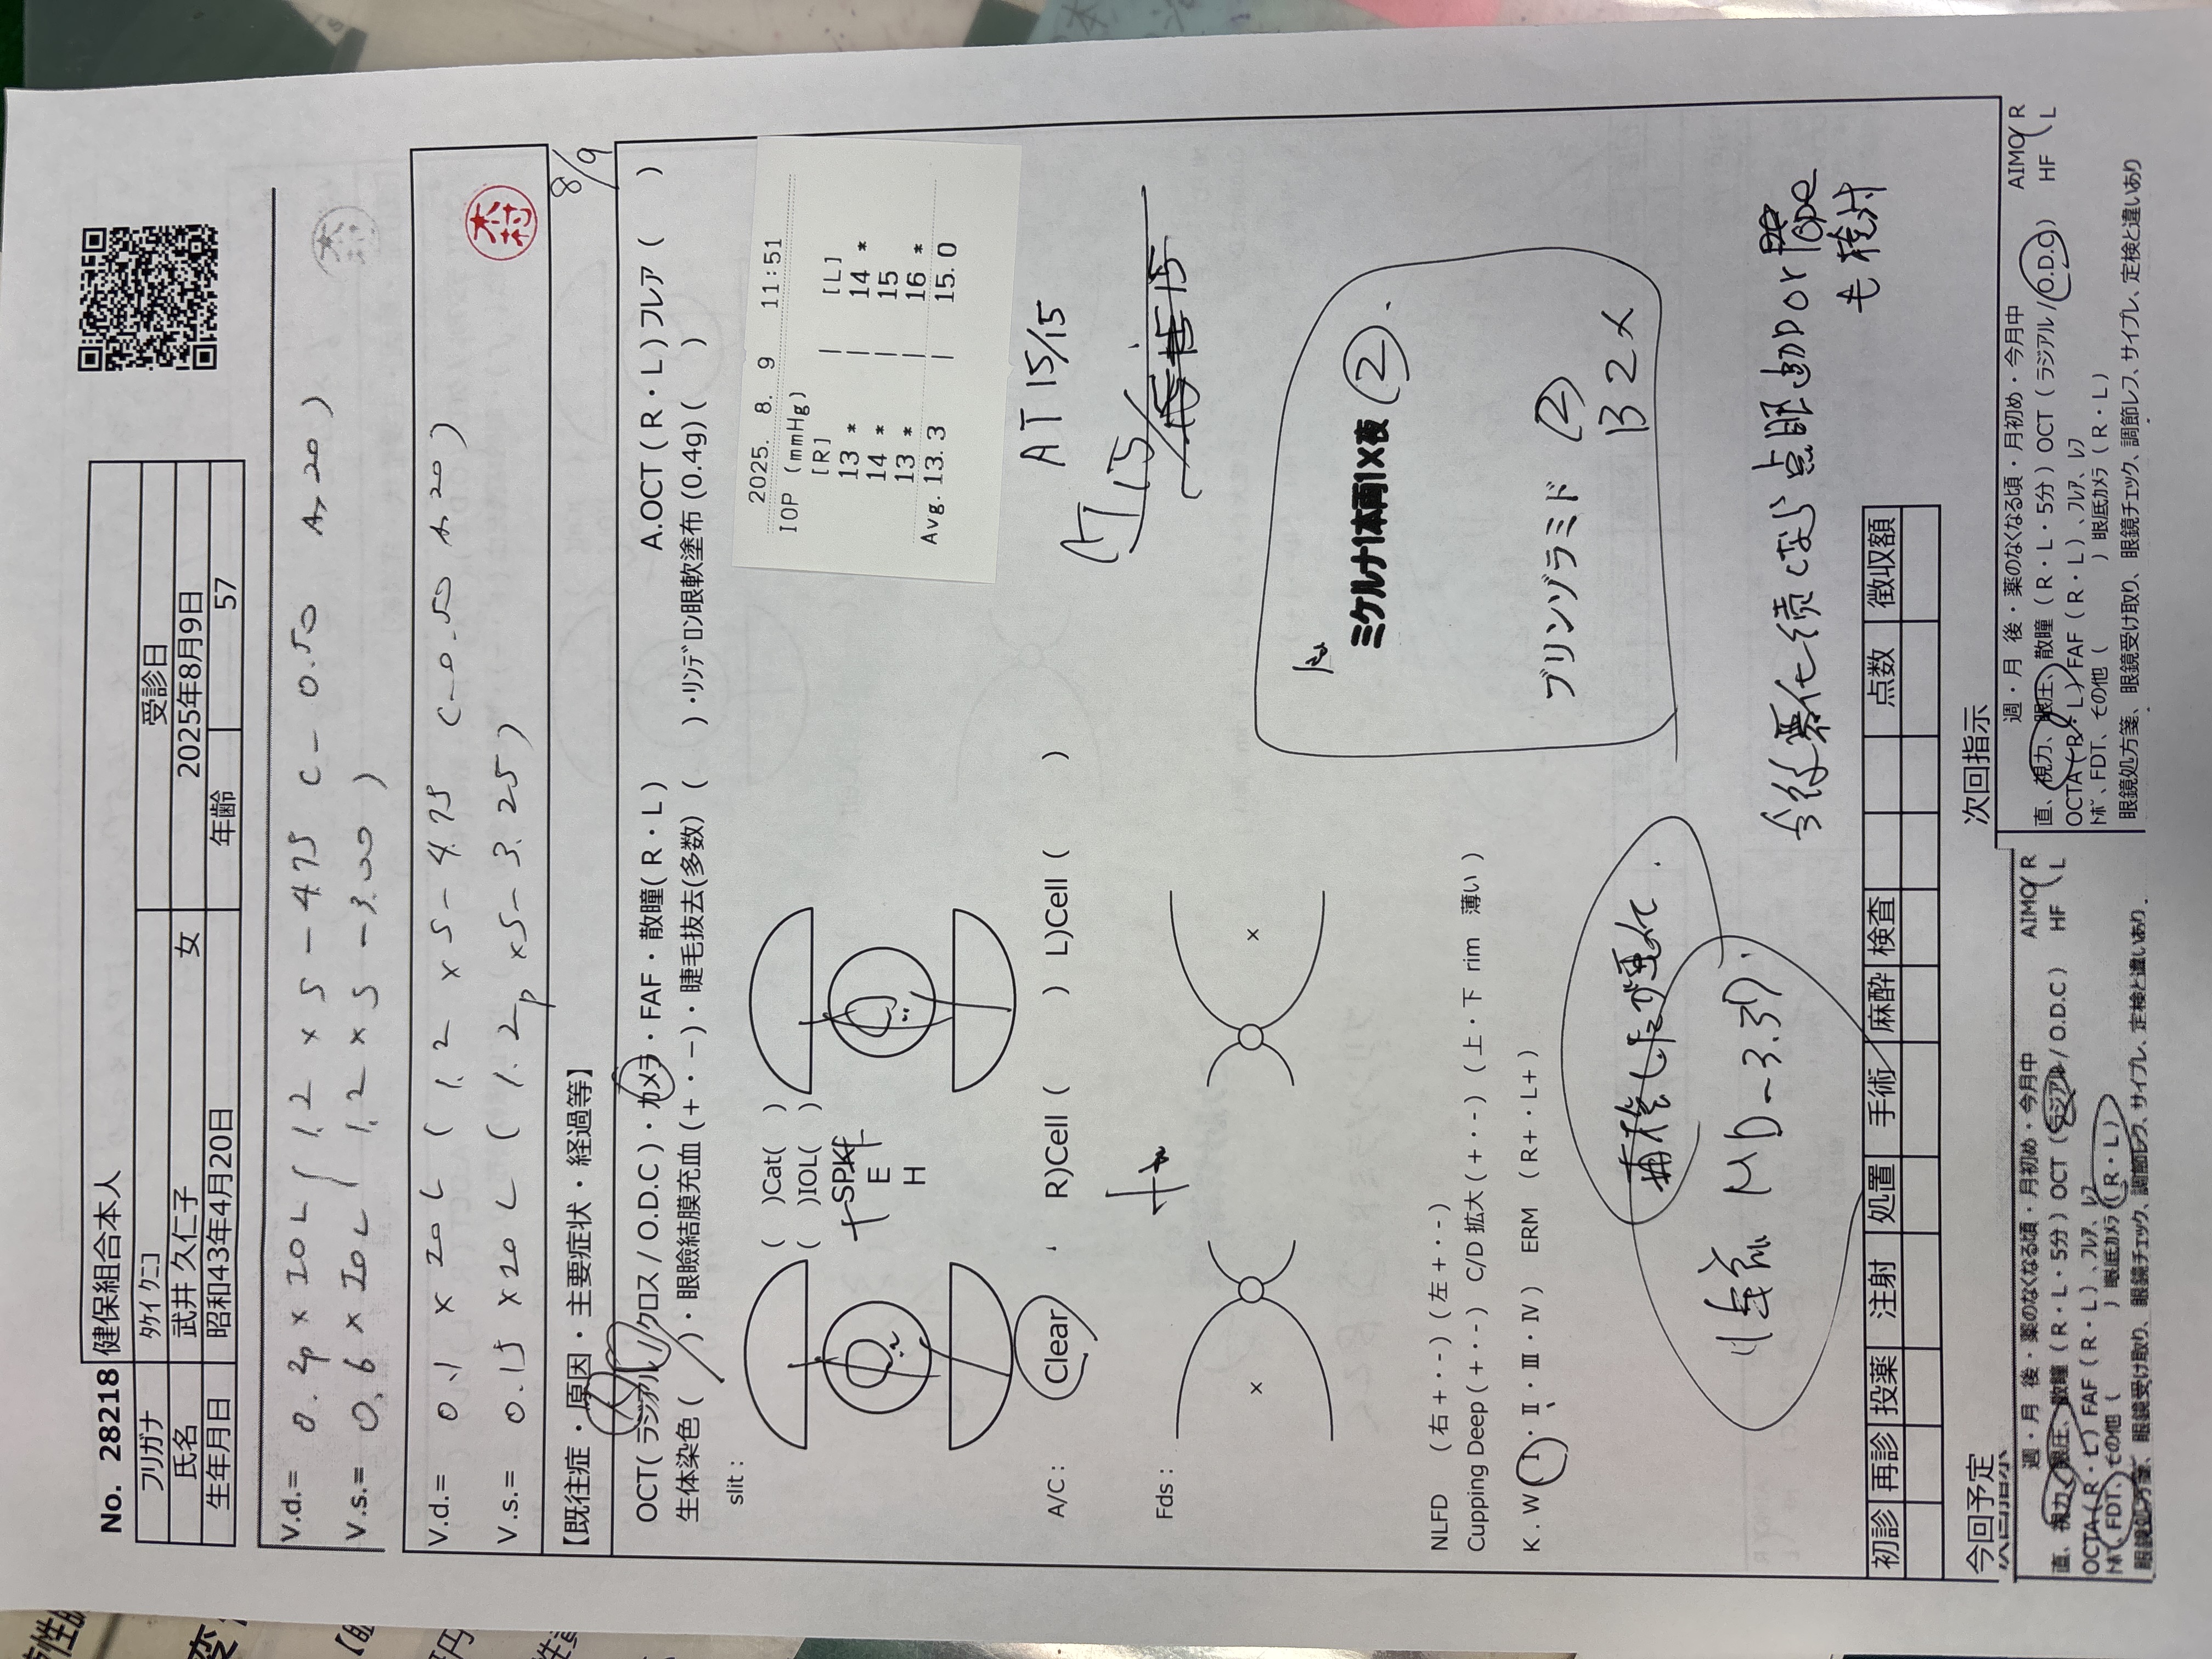 No. 28218 健保組合本人
フリガナ ﾀｹｲ ｸﾆｺ 受診日
氏名 武井 久仁子 女 2025年8月9日
生年月日 昭和43年4月20日 年齢 57
V.d.= 0.2p × IOL ( 1.2 × S - 4.75 C - 0.50 A, 20 )
V.s.= 0.6 × IOL ( 1.2 × S - 3.00 )
木村
V.d.= 0.1 × IOL ( 1.2 × S - 4.75 C - 0.50 A, 20 )
V.s.= 0.15 × IOL ( 1.2p × S - 3.25 )
木村
【既往症・原因・主要症状・経過等】
8/9
OCT( ラジアル / クロス / O.D.C )・カメラ・FAF・散瞳( R・L )
A.OCT ( R・L ) フレア ( )
生体染色 ( )・眼瞼結膜充血 (+・−)・睫毛抜去(多数) ( )・ﾘﾝﾃﾞﾛﾝ眼軟塗布 (0.4g) ( )
slit :
( )Cat( )
( )IOL( )
+ SPK +
E
H
2025. 8. 9 11:51
IOP (mmHg)
[R] | [L]
13 * | 14 *
14 * | 15
13 * | 16 *
Avg. 13.3 | 15.0
AT 15/15
A/C : Clear ・ R)Cell ( ) L)Cell ( )
15/
15 15 15
Fds :
× ×
ミケルナ1本両1×夜 ②.
NLFD (右 +・-) (左 +・-)
Cupping Deep (+・-) C/D 拡大 (+・-) (上・下 rim 薄い )
K.W ( Ⅰ・Ⅱ・Ⅲ・Ⅳ) ERM ( R+・L+ )
ブリンゾラミド ②
B 2×
再検したが悪化.
MD -3.37.
今後悪化続くなら点眼追加 or ope
も検討
初診 再診 投薬 注射 処置 手術 麻酔 検査 点数 徴収額
今回予定
次回指示
週・月 後・薬のなくなる頃・月初め・今月中 AIMO R
直、視力、眼圧、散瞳 ( R・L・5分 ) OCT ( ラジアル / O.D.C ) HF L
OCTA ( R・L ) FAF ( R・L )、ﾌﾚｱ、ﾚﾌ
ﾄﾎﾟ、FDT、その他 ( ) 眼底カメラ ( R・L )
眼鏡処方箋、眼鏡受け取り、眼鏡チェック、調節レフ、サイプレ、定検と違いあり
次回指示
週・月 後・薬のなくなる頃・月初め・今月中 AIMO R
直、視力、眼圧、散瞳 ( R・L・5分 ) OCT ( ラジアル / O.D.C ) HF L
OCTA ( R・L ) FAF ( R・L )、ﾌﾚｱ、ﾚﾌ
ﾄﾎﾟ、FDT、その他 ( ) 眼底カメラ ( R・L )
眼鏡処方箋、眼鏡受け取り、眼鏡チェック、調節レフ、サイプレ、定検と違いあり